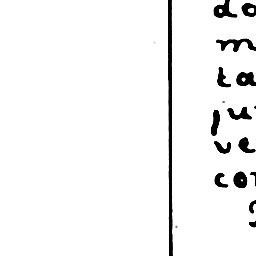 do
m
ta
ju
ve
con